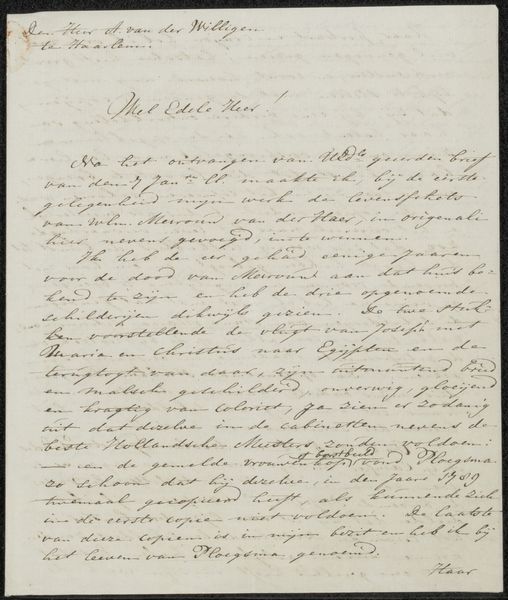 Den Heer A. van der Willigen
te Haarlem.
Wel Edele Heer!
Na het ontvangen van UEds. geeerden brief
van den 7 Janr. ll. maakte ik, bij de eerste
gelegenheid mijn werk de levensschets
van wln. van der Haer, in originali
hier nevens gevoegd, in te winnen.
Ik heb de eer gehad eenige jaaren
voor de dood van aan dat huis be-
kend te zijn en heb de drie opgenoemde
schilderijen dikwijls gezien. De twee stuk-
ken voorstellende de vlugt van Joseph met
Maria en Christus naar Egijpten en de
terugtogt van daar, zijn uitmuntend breed
en malsch geschilderd, gloeijend
en kragtig van coloriet, ja zien er zodanig
uit dat dezelve in de cabinetten nevens de
beste Hollandsche Meesters zouden voldoen:
— en de gemelde vrouwenkop of borstbeeld vond Ploegsma
zo schoon dat hij dezelve, in den jaare 1789
twemaal gecopieerd heeft, als kunnende zich
in de eerste copie niet voldoen. De laatste
van deeze copien is in mijn bezit en heb ik bij
het leeven van Ploegsma genoemd.
Haar